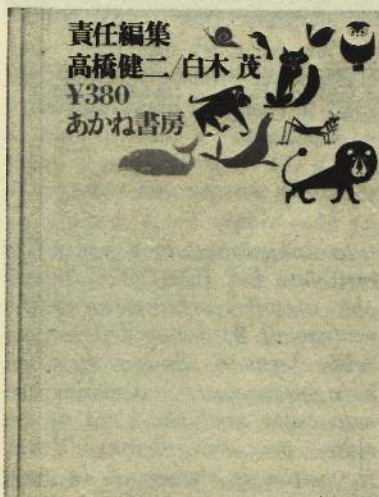 責任編集
高橋健二/白木 茂
¥380
あかね書房